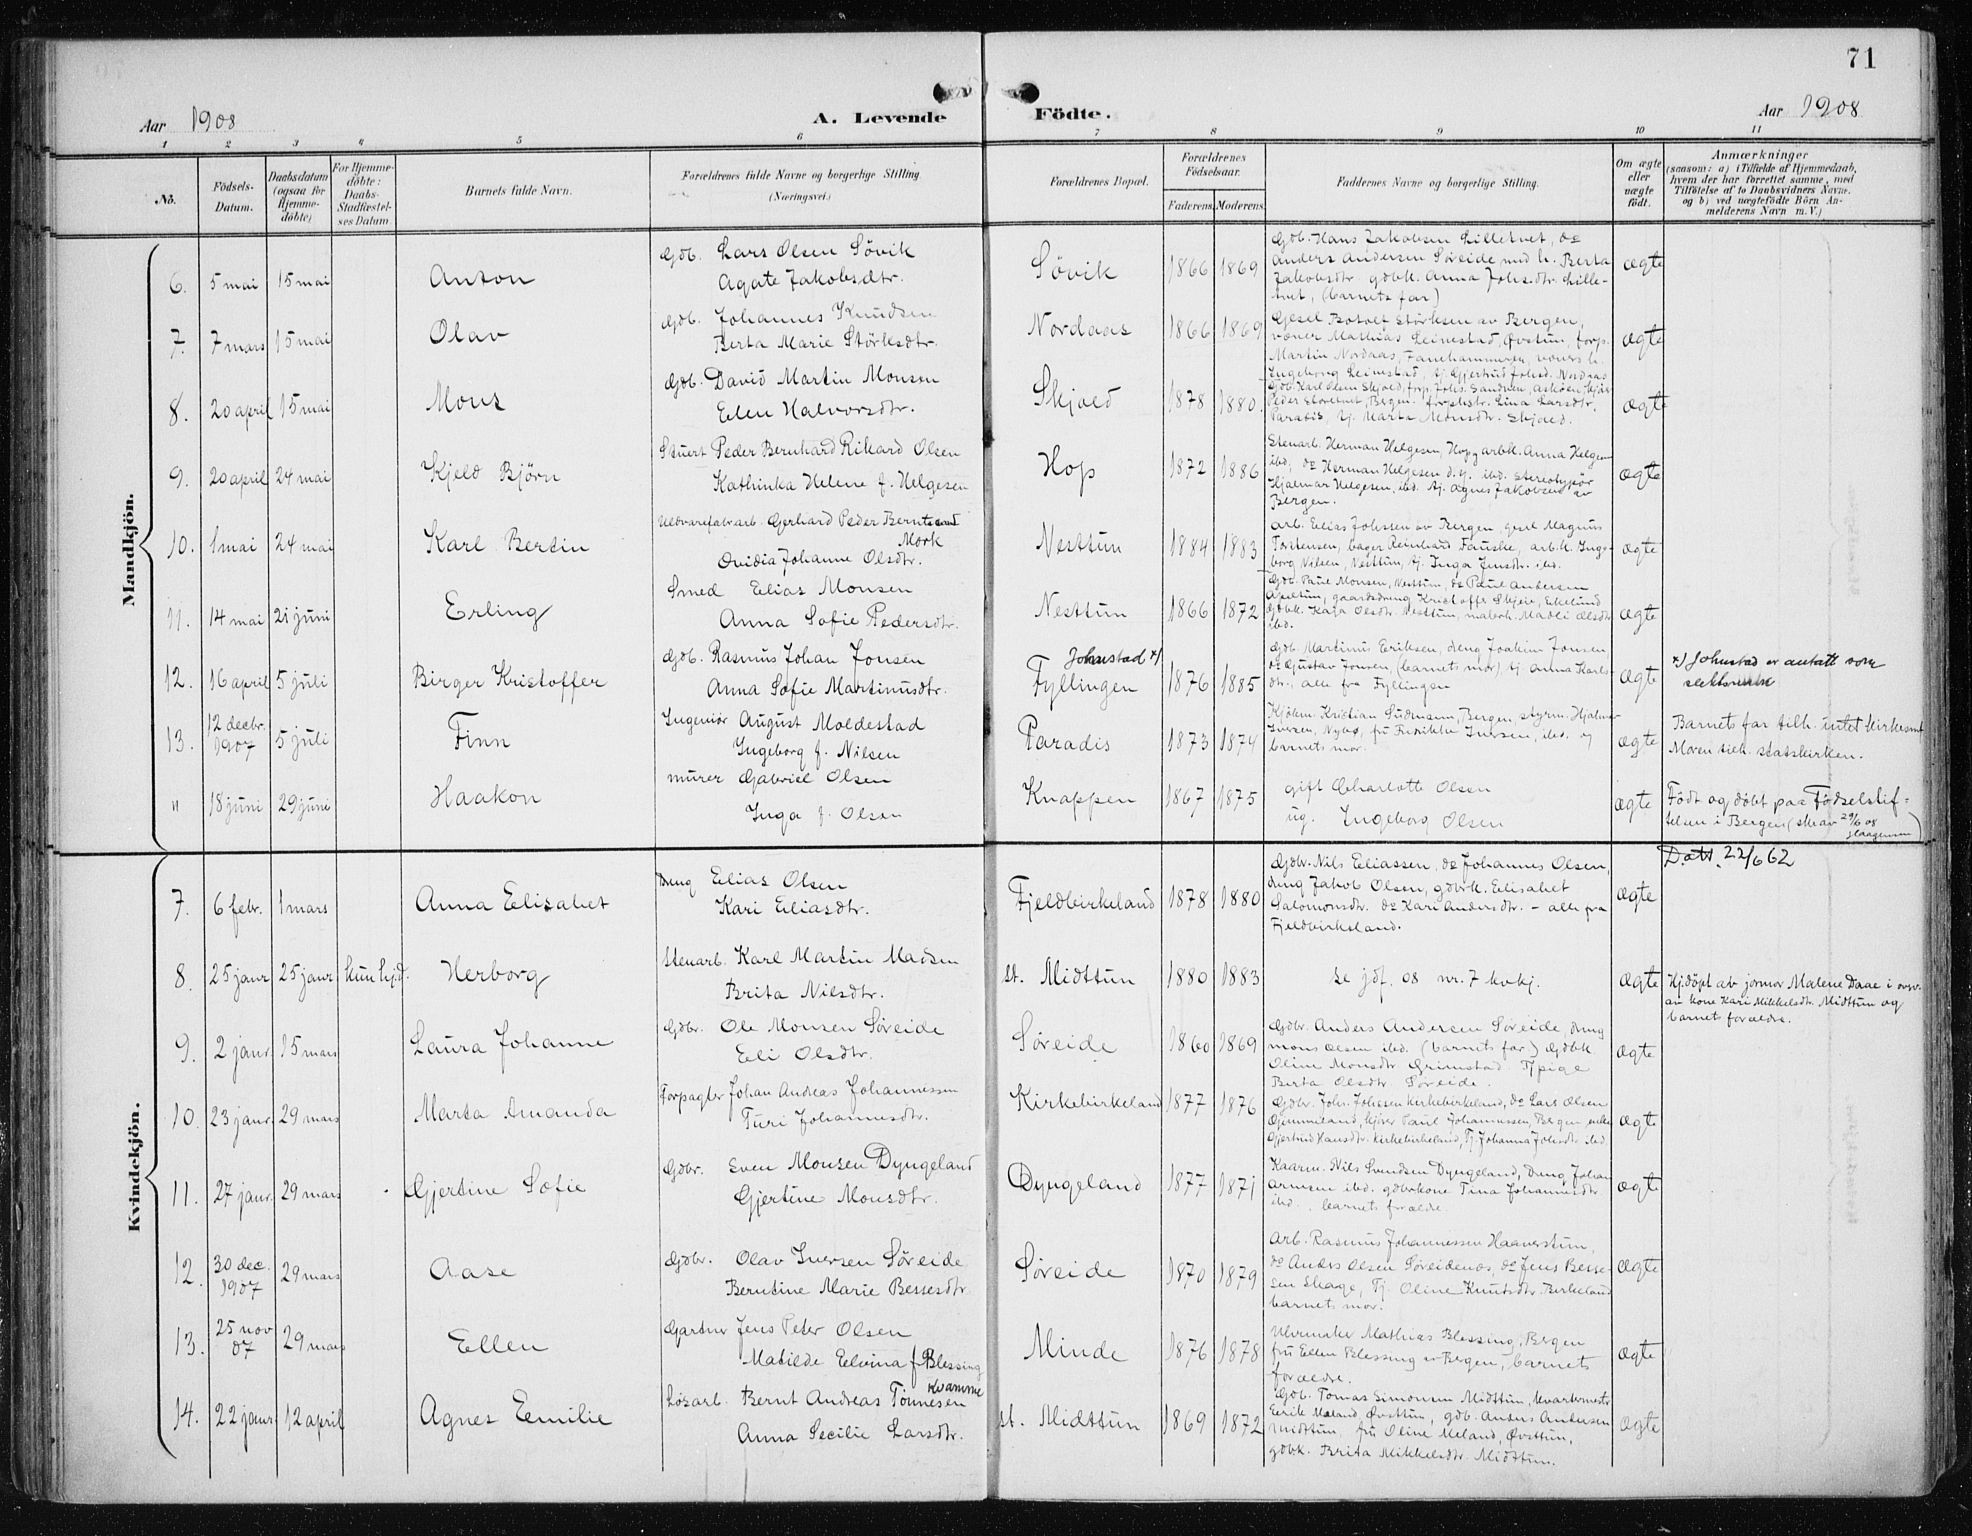 71
Aar 1908
A. Levende Födte.
Aar 1908
1 2 3 4 5 6 7 8 9 10 11
No.
Födsels-Datum.
Daabsdatum (ogsaa for Hjemme-döbte)
For Hjemme-döbte: Daabs-Stadfæstel-ses Datum.
Barnets fulde Navn.
Forældrenes fulde Navne og borgerlige Stilling.
(Næringsvei.)
Forældrenes Bopæl.
Forældrenes Födselsaar.
Faderens. Moderens.
Faddernes Navne og borgerlige Stilling.
Om ægte eller uægte födt.
Anmærkninger
(saasom: a) i Tilfælde af Hjemmedaab,
hvem der har forrettet samme, med
Tilföielse af to Daabsvidners Navne.
og b) ved uægtefödte Börn An-
melderens Navn m. V.)
Mandkjön.
6. 5 mai 15 mai Anton
Gdb. Lars Olsen Sövik
Agate Jakobsdtr.
Sövik 1866 1869
Gdb. Hans Jakobsen Lilletvet, do
Anders Andersen Søreide med h. Berta
Jakobsdtr gdbk. Anna Johsdtr. Lille-
tvet, (barnets far)
ægte
7. 7 mars 15 mai Olav
Gdb. Johannes Knudsen
Berta Marie Störksdtr.
Nordaas 1866 1869
Martin Nordaas, Fanehammeren,
ægte
8. 20 april 15 mai Mons
Gdb. David Martin Monsen
Elen Halvorsdtr.
Skjold 1878 1880.
Paradis, tj. Marta Monsdtr. Skjold.
ægte
9. 20 april 24 mai Kjeld Björn
Stuert Peder Bernhard Rikard Olsen
Kathinka Helene f. Helgesen
Hop 1872 1886
Stenarb. Herman Helgesen, Hop, arbk. Anna Helgesen
ibd, do Herman Helgesen d.y. ibd. stereotypør
Hjalmar Helgesen, ibd. tj. Agnes Jakobsen av
Bergen.
ægte
10. 1 mai 24 mai Karl Bertin
Uldvarefabr.arb. Gerhard Peder Berntsen
Mork
Ovidia Johanne Olsdtr.
Nesttun 1884 1883
Arb. Elias Johssen av Bergen, gesel Magnus
Torstensen, bager Reinhard Fauske, arb.k. Inge-
borg Nilsen, Nesttun, tj. Inga Jensdtr. ibd.
ægte
11. 14 mai 21 juni Erling
Smed Elias Monsen
Anna Sofie Pedersdtr.
Nesttun 1866 1872
Gdb. Paul Monsen, Nesttun, do Paul Andersen
Apeltun, gaardsdreng Kristoffer Skjeie, Eikelund
gdbk. Kaja Olsdtr. Nesttun, malerk. Madli Olsdtr
ibd.
ægte
12. 16 april 5 juli Birger Kristoffer
Gdb. Rasmus Johan Jonsen
Anna Sofie Martinusdtr.
Johnstad x)
Fyllingen 1876 1885
Gdb. Martinus Eriksen, dreng Joakim Jonsen,
do Gustav Jonsen, (barnets mor), tj. Anna Karls-
dtr., alle fra Fyllingen
ægte
x) Johnstad er antatt som
slektsnavn
13. 12 decbr. 1907 5 juli Finn
Ingeniør August Moldestad
Ingeborg f. Nilsen
Paradis 1873 1874
Kjøbm. Kristian Sudmann, Bergen, styrm. Hjalmar
Iversen, Nybø, fru Fredrikke Iversen, ibd. og
barnets mor.
ægte
Barnets far tilh. intet kirkesamf
Moren tilh. statskirken.
" 18 juni 29 juni Haakon
murer Gabriel Olsen
Inga f. Olsen
Knappen 1867 1875
gift Charlotte Olsen
ug. Ingeborg Olsen
ægte
Födt og döbt paa Födselstif-
telsen i Bergen (skriv 29/6 08
Kvindekjön.
7. 6 febr. 1 mars Anna Elisabet
Dreng Elias Olsen
Kari Eliasdtr.
Fjeldbirkeland 1878 1880
Gdbr. Nils Eliassen, do Johannes Olsen,
dreng Jakob Olsen, gdbrk. Elisabet
Salomonsdtr. do Kari Andersdtr. - alle fra
Fjeldbirkeland.
ægte
Døtt. 22/6 62
8. 25 janr 25 janr kun hjd. Herborg
Stenarb. Karl Martin Madsen
Brita Nilsdtr.
st. Midttun 1880 1883
se jdf. 08 nr. 7 kvkj.
ægte
Hj.døpt av jormor Malene Daae i overv.
av kone Kari Mikkelsdtr. Midttun og
barnet forældre.
9. 2 janr. 15 mars Laura Johanne
Gdbr. Ole Monsen Søreide
Eli Olsdtr.
Søreide 1860 1869
Gdbr. Anders Andersen Søreide, dreng
Mons Olsen ibd. (barnets far) Gdbk
Oline Monsdtr Grimstad. Tpige
Berta Olsdtr Søreide.
ægte
10. 23 janr. 29 mars Marta Amanda
Forpagter Johan Andreas Johannessen
Turi Johannesdtr.
Kirkebirkeland 1877 1876
Gdbr. Johs. Johssen Kirkebirkeland, do Lars Olsen
Gjertrud Hansdtr. Kirkebirkeland, Tj. Johanna Johsdtr ibd.
ægte
11. 27 janr. 29 mars Gjertine Sofie
Gdbr. Even Monsen Dyngeland
Gjertine Monsdtr.
Dyngeland 1877 1871
Kaarm. Nils Svendsen Dyngeland, Dreng Johan
Arnesen ibd. gdbrkone Tina Johannesdtr
ibd. barnets forældre.
ægte
12. 30 dec. 1907 29 mars Aase
Gdbr. Olav Iversen Søreide
Berntine Marie Bessesdtr.
Søreide 1870 1879
Arb. Rasmus Johannessen Haaverstun,
do Anders Olsen Søreidenes, do Jens Besse-
sen Skage, Tj. Oline Knutsdtr. Birkeland
barnets mor.
ægte
13. 25 nov 07 29 mars Ellen
Gartner Jens Peter Olsen
Matilde Elvina f. Blessing
Minde 1876 1878
Uhrmaker Mathias Blessing, Bergen
fru Ellen Blessing av Bergen, barnets
forældre.
ægte
14. 22 janr. 12 april Agnes Emilie
Kvamme
Løsarb. Bernt Andreas Tønnesen
Anna Secilie Larsdtr.
st. Midttun 1869 1872
Gdb. Tomas Simonsen Midttun, kvartermester
Eirik Meland, Øvsttun, gdb. Anders Andersen
Midttun, fru Oline Meland, Øvsttun,
gdbk. Brita Mikkelsdtr. Midttun.
ægte